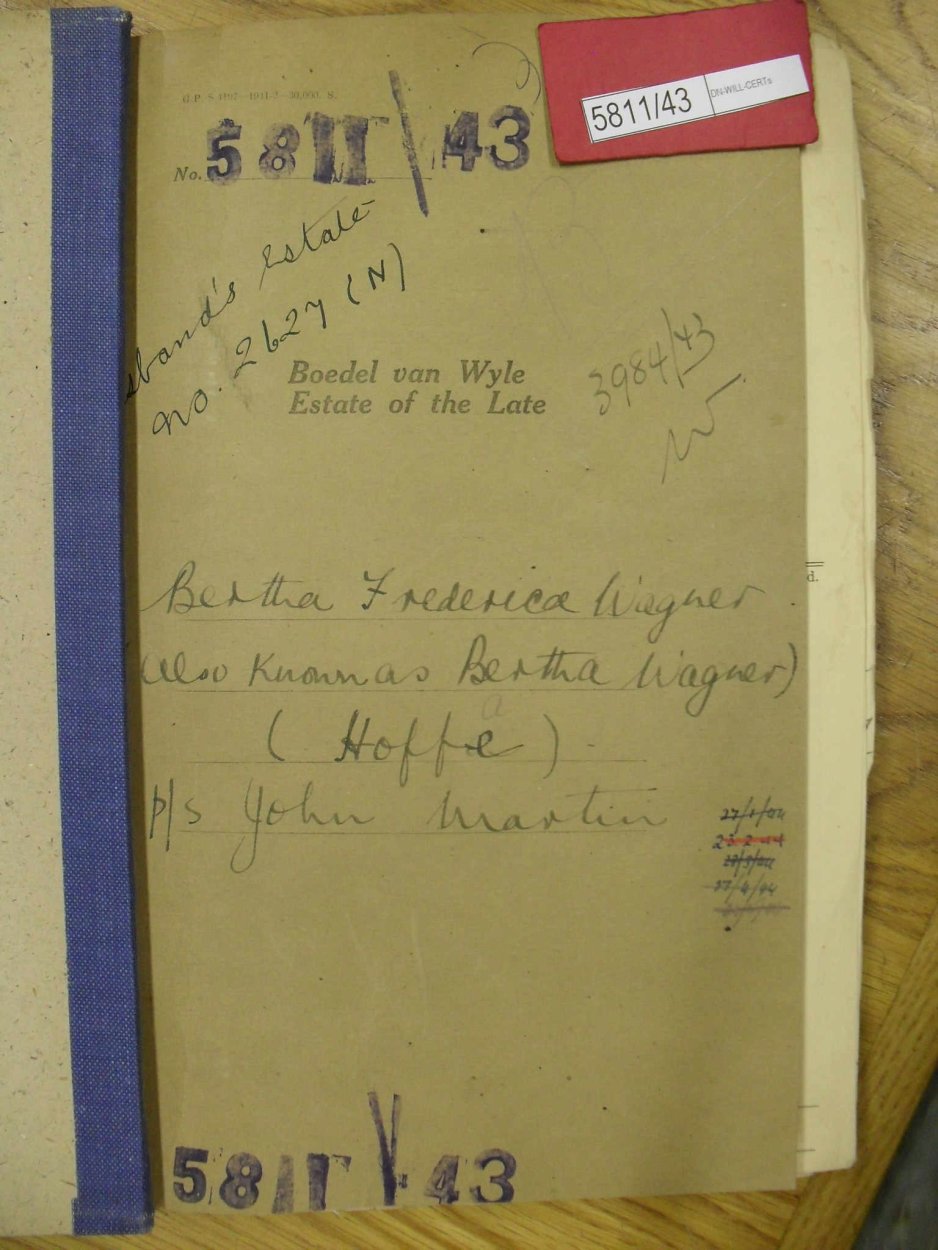 5811/43
DN-WILL-CERTs
G.P.
No. 5811/43
sband's Estate
No. 2627 (N)
Boedel van Wyle
Estate of the Late
3984/43
Bertha Frederica Wagner
(also known as Bertha Wagner)
(Hoffe)
a
p/s John Martin
d.
5811/43